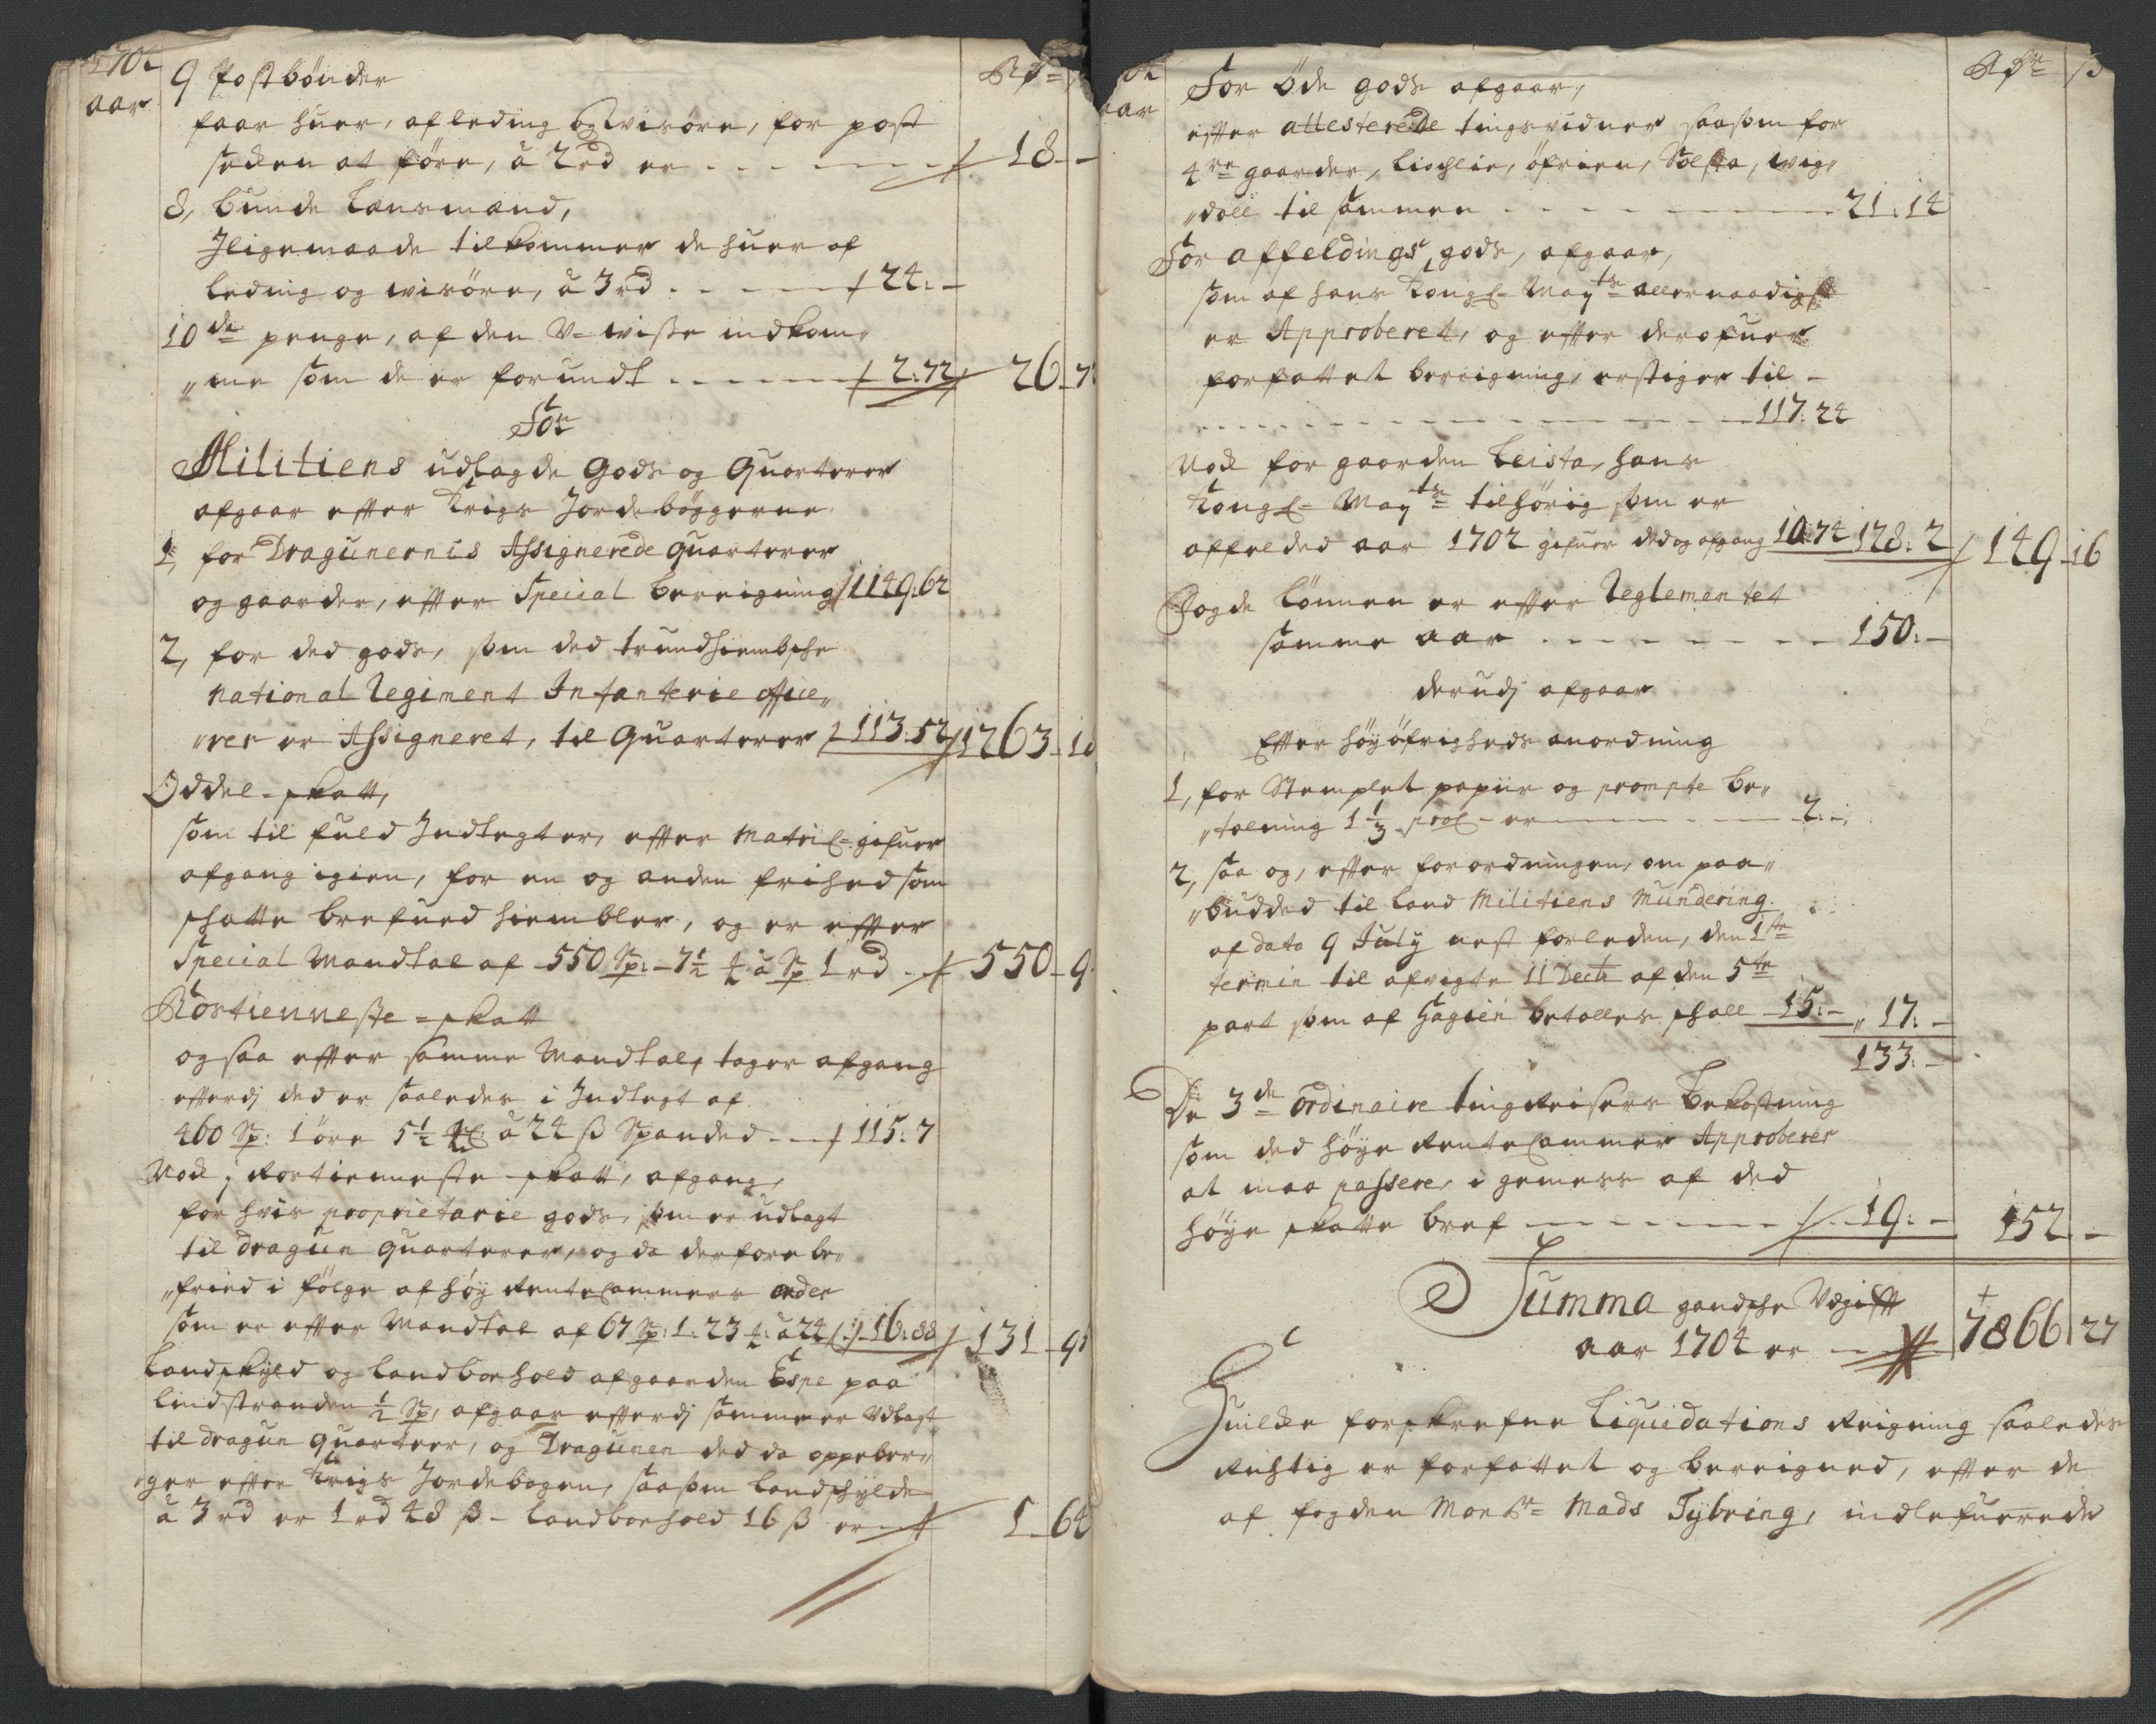 1704
aar
Rdr
9 Postbönder
faar huer, af leding og visöre, for post
seken at före, â 2 rd er - - - - 18 - -
8, bunde Lensmænd,
Iligemaade tilkommer de huer af
leding og wisöre, â 3 rd - - - - 24: -
10de penge, af den V-wisse indkom„
„me som de er forundt - - - - 2:72 26 - 7
For
Militiens udlagde Gods og Quarterer
afgaar efter Krigs Jordebøggerne
1, for Dragunernis Assignerede quarterer
og gaarder, efter Special bereigning 1149:62
2, for ded gods, som ded trundhiembsche
National Regiment Infanterie office„
„rer er Assigneret, til Quarterer 113:52 1263 - 18
Oddel-skatt,
som til fuld Indtegter, efter Matricl: gifuer
afgang igien, for en og anden frihed som
skatte brefued hiembler, og er efter
Special Mandtal af 550 Sp: - 7½ â Sp 1 rd - 550 - 9
Rostienneste-skatt
ogsaa efter samme Mandtal, tager afgang
efterdj ded er saaledes i Indtegt af
460 Sp: 1 öre 5½ â 24 ß Spanded - - 115:7
Nok, Rostienneste skatt, afgang,
for hvis proprietarie gods, som er udlagt
til dragun quarterer, og da derfore be„
„fried i følge af höy Rente Cammers order
som er efter Mandtal af 67 Sp: 1:23 â 24 ß 16:88 131 - 95
Landskyld og landborhold af gaarden Espe paa
Lindstranden ½ Sp, afgaar efterdj samme er Udlagt
til dragun quarteer, og Dragunen ded da oppeber„
„ger efter Krigs Jordebogen, saasom landschylde
â 3 rd er 1 rd 48 ß - landborhold 16 ß er - 1 - 64
aar
Rdr ß
For öde gods afgaar,
efter attesterede tingsvidner saasom for
4re gaarder, Lischlie, öfrien, Solsta, wig„
„doll til sammen - - - - 21:14
For affeldings gods, afgaar,
som af hans Kongl- Mayts allernaadigst
er Approberet, og efter derofuer
forfattet bereigning, erstiger til -
- - - - 117:24
Nok for gaarden Leista, hans
Kongl- Mayts tilhörig som er
affelded aar 1702 gifuer ded og afgang 10:74 128:2 149 - 16
Fogde lönnen er efter Reglementet
samme aar - - - - 150: -
derudj afgaar
Efter höyöfrigheds anordning
1, for Stemplet papiir og prompte be„
„talning 1⅓ procl - er - - - - 2: -
2, saa og, efter forordningen, om paa„
„budded til Land Militiens Mundering
af dato 9 July nest forleden, den 1ste
termin til afvigte 11 Decbr af den 5te
part som af Gagien betalles skall 15: - „ 17: -
133: -
De 3de ordinaire ting Reisers Bekostning
som ded höye Rente Cammer Approberer
at maa passere, i gemess af ded
höye skatte bref - - - - 19: - 152 -
Summa gandsche Udgifft
aar 1704 er - - 7866 27
Huilke forskrefne Liquidations Reigning saaledes
Richtig er forfattet og bereigned, efter de
af fogden Monsr Mads Tybring, indlefuerede